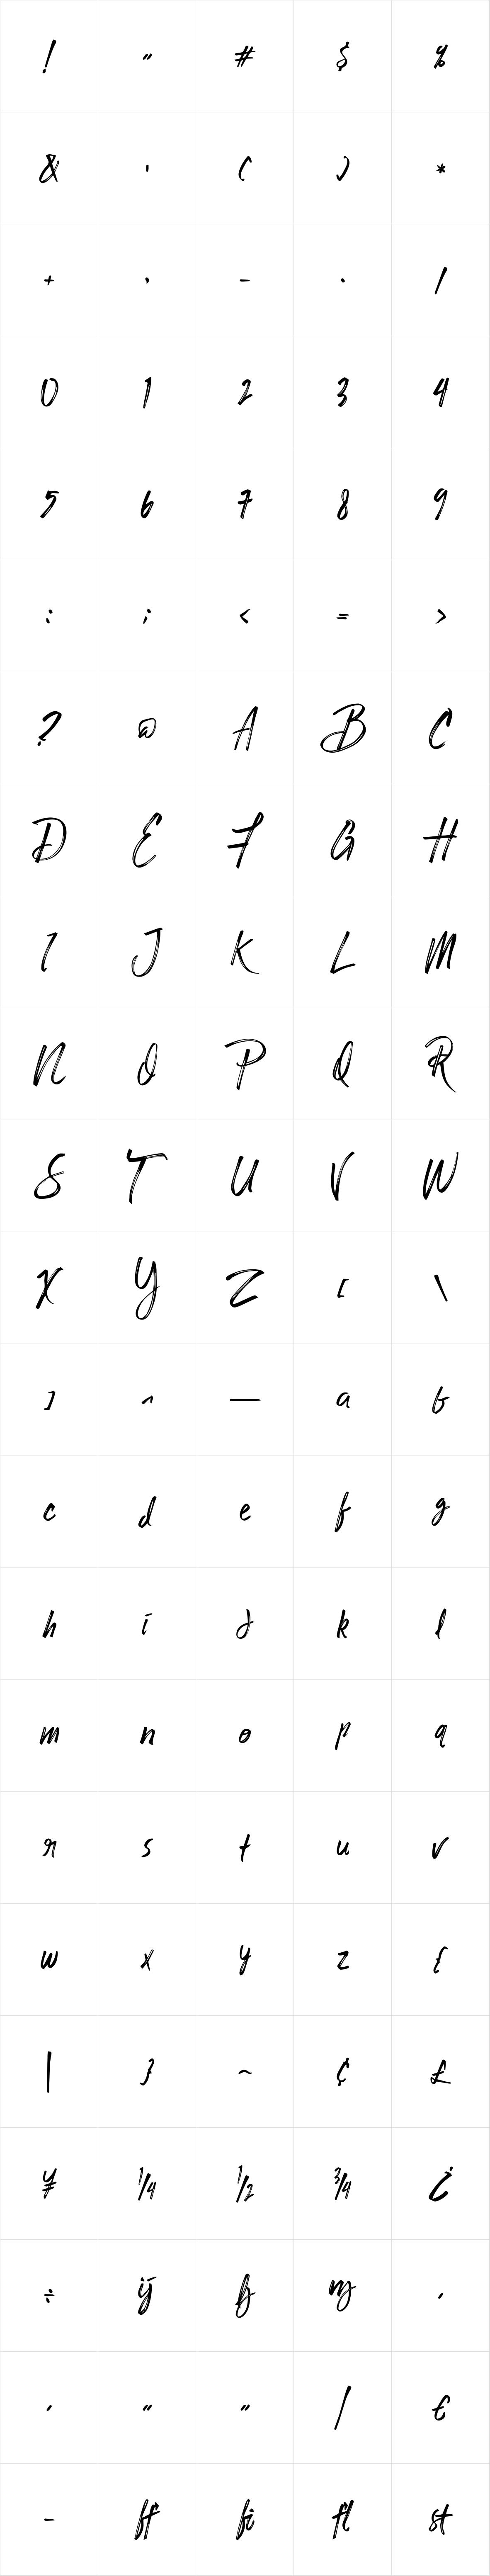 ! " # $ %
& ' ( ) *
+ , - . /
0 1 2 3 4
5 6 7 8 9
: ; < = >
? @ A B C
D E F G H
I J K L M
N O P Q R
S T U V W
X Y Z [ \
] ^ _ a b
c d e f g
h i j k l
m n o p q
r s t u v
w x y z {
| } ~ ¢ £
¥ ¼ ½ ¾ ¿
÷ ij
“ ” ⁄ €
- ff fi fl st